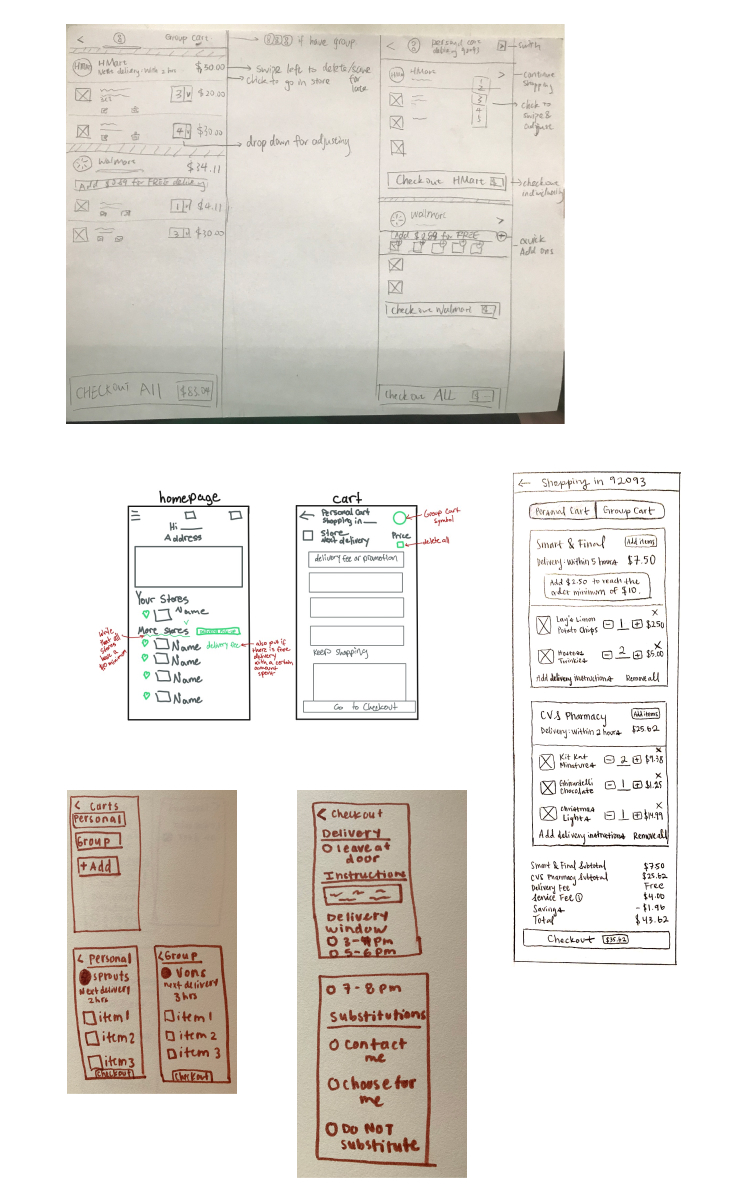 Group Cart
if have group
HMart
HMart
$50.00
swipe left to delete/save for later
click to go in store
3
$20.00
4
$30.00
drop down for adjusting
Walmart
$34.11
Add $0.89 for FREE delivery
1
$4.11
3
$30.00
CHECKOUT All
$85.04
personal cart
HMart
1
2
3
4
5
continue shopping
click to swipe & adjust
Checkout HMart
checkout individually
Walmart
Quick Add ons
Checkout Walmart
Checkout ALL
homepage
Hi
Address
Your Stores
Name
More Stores
Name
delivery fee
Name
Name
Name
also put if there is free delivery with a certain amount spent
cart
Personal Cart
Shopping in
Group Cart Symbol
Store
next delivery
Price
delete all
delivery fee or promotion
Keep Shopping
Go to Checkout
Shopping in 92093
Personal Cart
Group Cart
Smart & Final
Add items
Delivery: Within 5 hours
$7.50
Add $2.50 to reach the order minimum of $10.
Lay's Limon Potato Chips
1
$2.50
Hostess Twinkies
2
$5.00
Add delivery instructions
Remove all
CVS Pharmacy
Add items
Delivery: Within 2 hours
$25.62
Kit Kat Miniatures
2
$9.38
Ghirardelli Chocolate
1
$1.25
Christmas Lights
1
$14.99
Add delivery instructions
Remove all
Smart & Final Subtotal
$7.50
CVS Pharmacy Subtotal
$25.62
Delivery Fee
Free
Service Fee
$4.00
Savings
- $1.96
Total
$43.62
Checkout
$35.62
< Carts
Personal
Group
+ Add
< Personal
sprouts
Next delivery
2 hrs
item 1
item 2
item 3
Checkout
< Group
Vons
next delivery
3 hrs
item 1
item 2
item 3
Checkout
< Checkout
Delivery
leave at door
Instructions
Delivery window
3-4pm
5-6pm
7-8 pm
Substitutions
Contact me
choose for me
DO NOT substitute